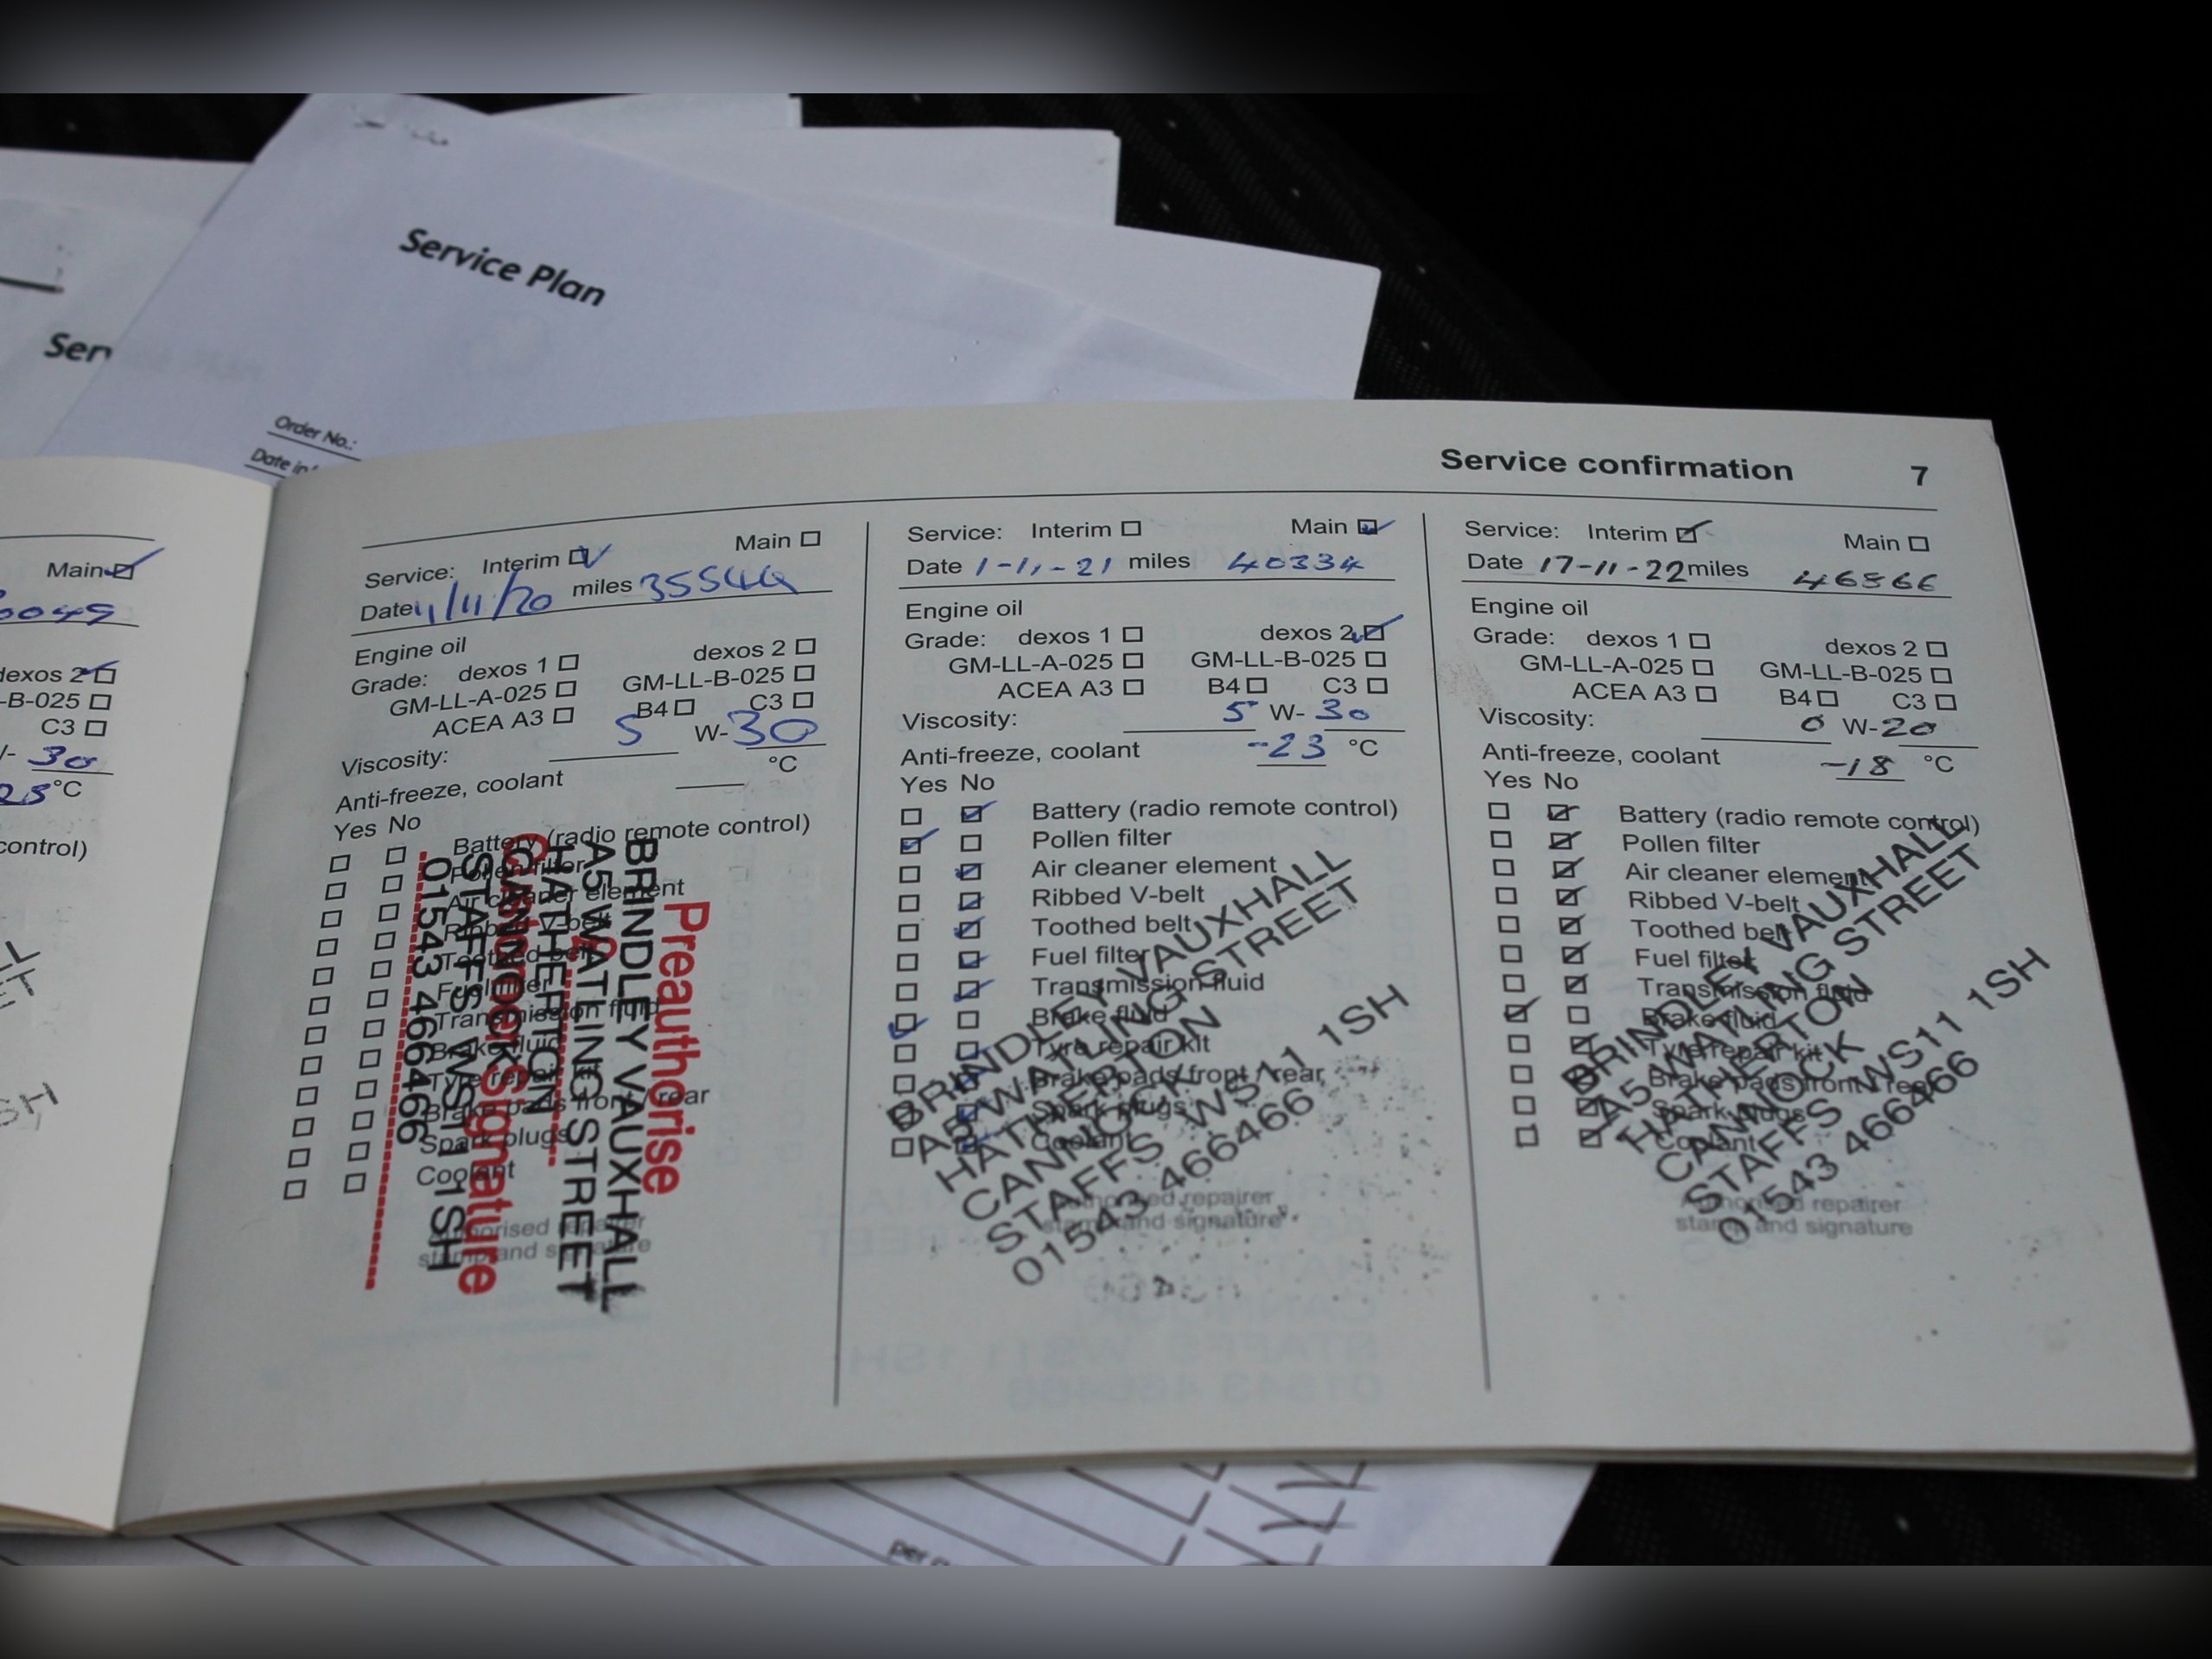 Service Plan
Serv
Order No.:
Date in
Service confirmation 7
Main
dexos 2
-B-025
C3
30
°C
control)
SH
Service: Interim Main
Date 11/11/20 miles 35544
Engine oil
Grade: dexos 1 dexos 2
GM-LL-A-025 GM-LL-B-025
ACEA A3 B4 C3
Viscosity: 5 W-30
Anti-freeze, coolant °C
Yes No
Battery (radio remote control)
Pollen filter
Air cleaner element
Ribbed V-belt
Toothed belt
Fuel filter
Transmission fluid
Brake fluid
Tyre repair kit
Brake pads front / rear
Spark plugs
Coolant
Authorised repairer
stamp and signature
Preauthorise
BRINDLEY VAUXHALL
A5 WATLING STREET
HATHERTON
CANNOCK
STAFFS WS11 1SH
01543 466466
Service: Interim Main
Date 1-11-21 miles 40334
Engine oil
Grade: dexos 1 dexos 2
GM-LL-A-025 GM-LL-B-025
ACEA A3 B4 C3
Viscosity: 5 W-30
Anti-freeze, coolant -23 °C
Yes No
Battery (radio remote control)
Pollen filter
Air cleaner element
Ribbed V-belt
Toothed belt
Fuel filter
Transmission fluid
Brake fluid
Tyre repair kit
Brake pads front / rear
Spark plugs
Coolant
Authorised repairer
stamp and signature
BRINDLEY VAUXHALL
A5 WATLING STREET
HATHERTON
CANNOCK
STAFFS WS11 1SH
01543 466466
Service: Interim Main
Date 17-11-22 miles 46866
Engine oil
Grade: dexos 1 dexos 2
GM-LL-A-025 GM-LL-B-025
ACEA A3 B4 C3
Viscosity: 0 W-20
Anti-freeze, coolant -18 °C
Yes No
Battery (radio remote control)
Pollen filter
Air cleaner element
Ribbed V-belt
Toothed belt
Fuel filter
Transmission fluid
Brake fluid
Tyre repair kit
Brake pads front / rear
Spark plugs
Coolant
Authorised repairer
stamp and signature
BRINDLEY VAUXHALL
A5 WATLING STREET
HATHERTON
CANNOCK
STAFFS WS11 1SH
01543 466466
per